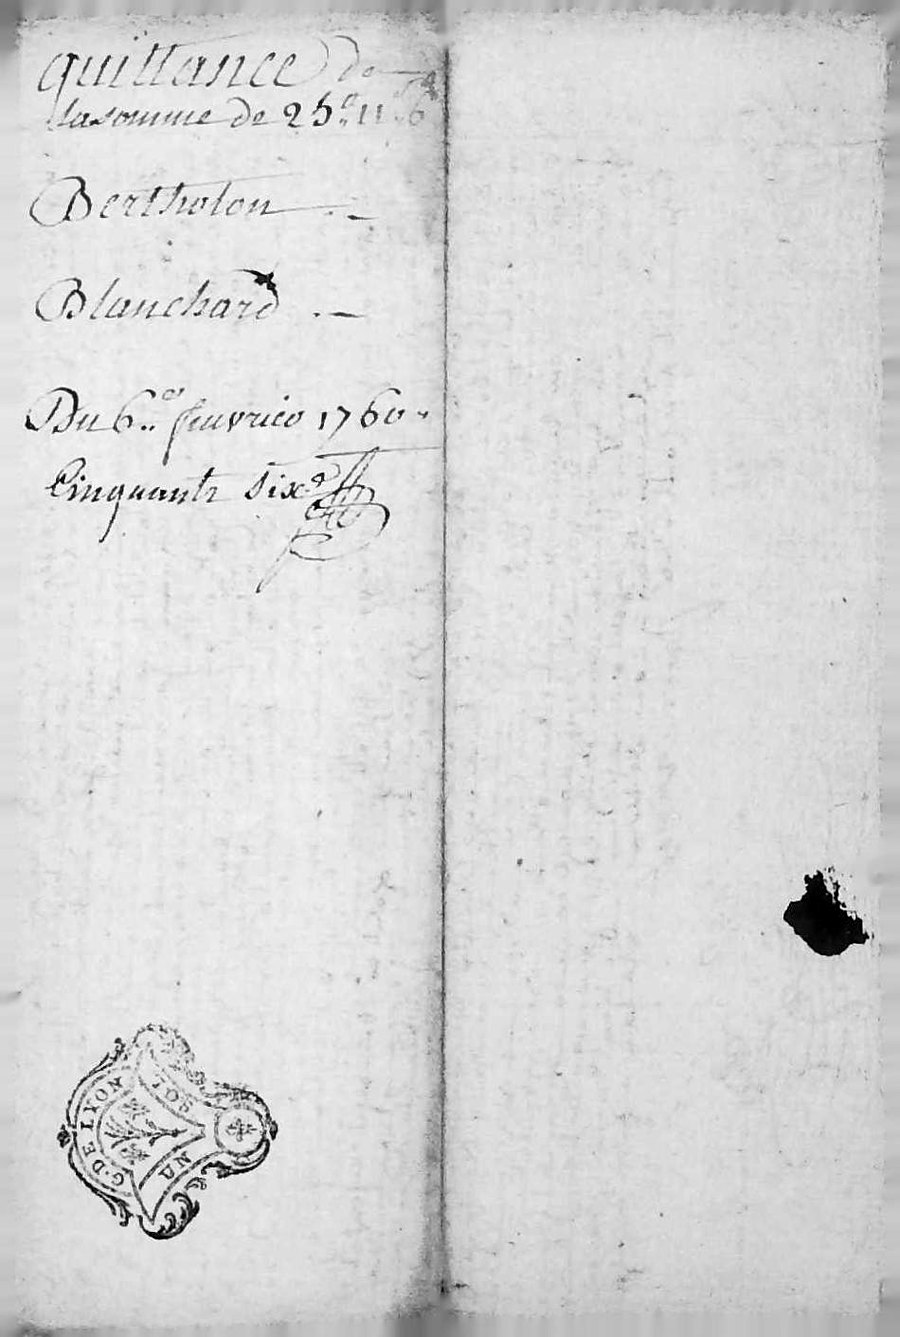 quittance de
la somme de 25# 11s 6d
Bertholon
Blanchard
Du 6er feuvrier 1760
Cinquante sixe
G. DE LYON